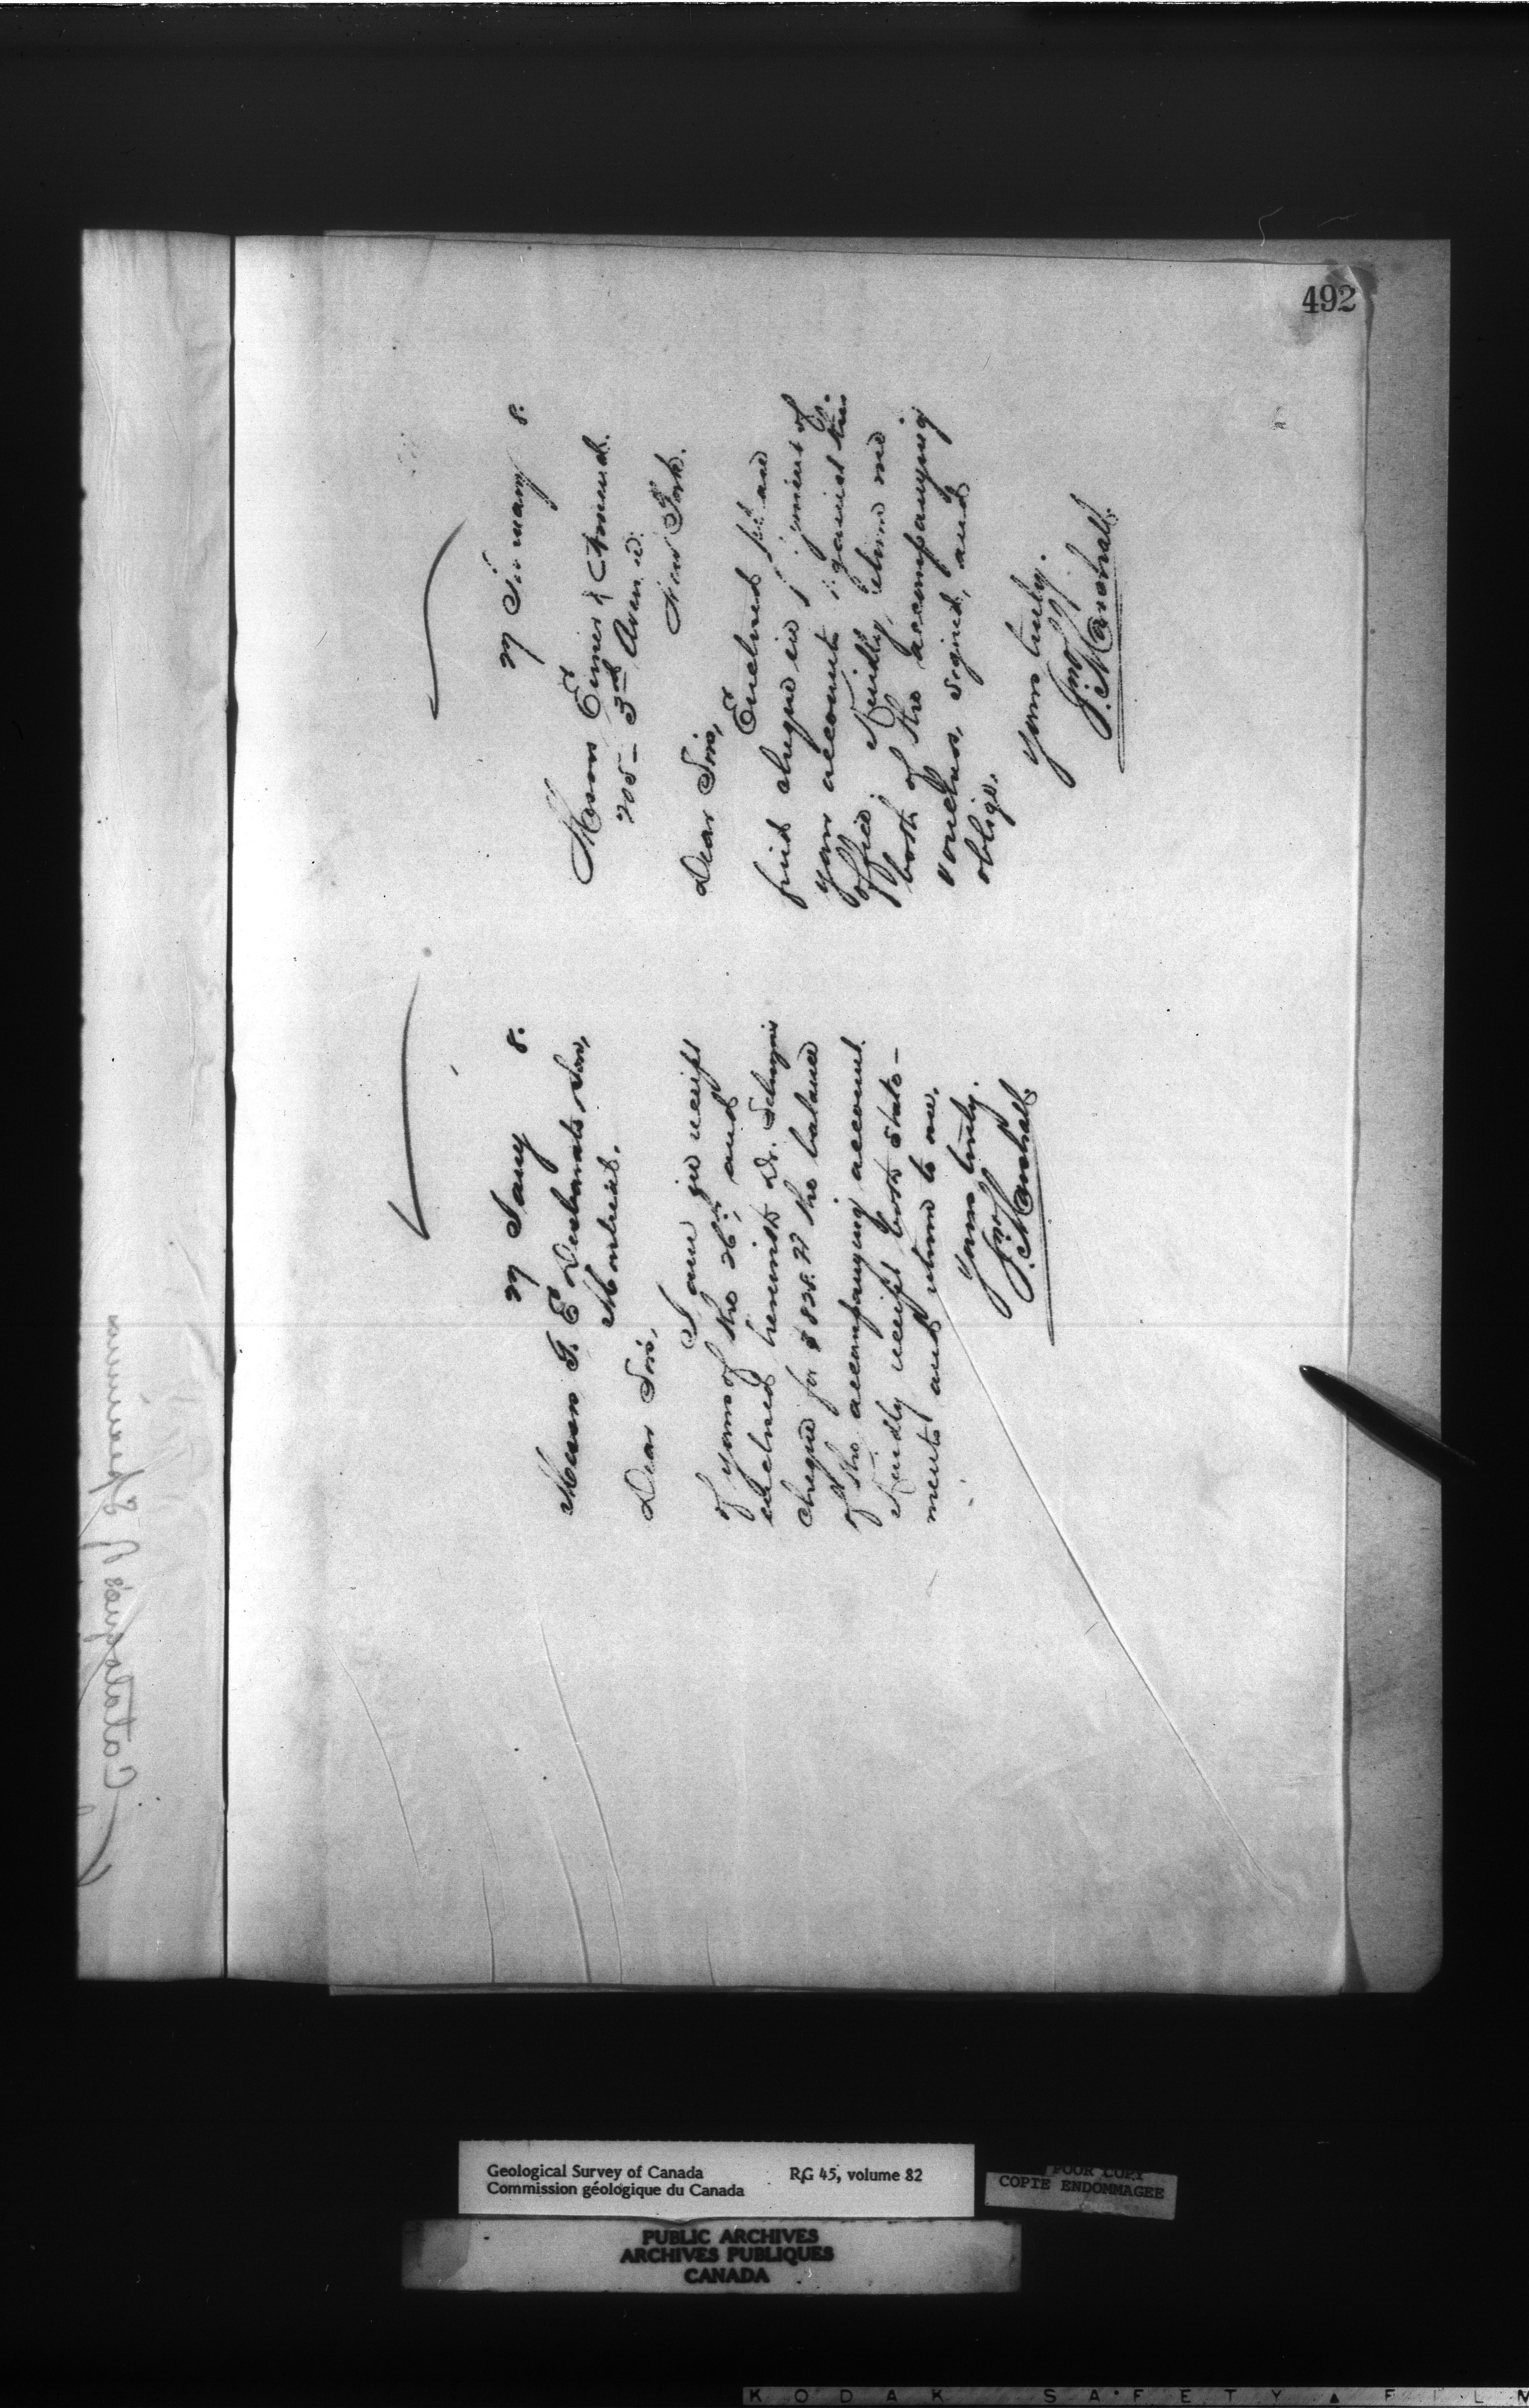 492
27 January 8.
Messrs Eimer & Amend.
205 - 3rd Avenue.
New York.
Dear Sirs,
Enclosed please
find cheque in payment of
your account against this
office. Kindly return me
both of the accompanying
vouchers signed, and
oblige.
Yours truly.
Jno. Marshall.
27 Jany 8.
Messrs G. E. Desbarats & Son,
Montreal.
Dear Sirs,
I am in receipt
of yours of the 26th, and
enclosed herewith Dr. Selwyn's
cheque for the balance
of the accompanying account.
Kindly receipt both state-
ments and return to me.
Yours truly.
Jno. Marshall.
Geological Survey of Canada RG 45, volume 82
Commission géologique du Canada
POOR COPY
COPIE ENDOMMAGEE
PUBLIC ARCHIVES
ARCHIVES PUBLIQUES
CANADA
KODAK SAFETY FILM